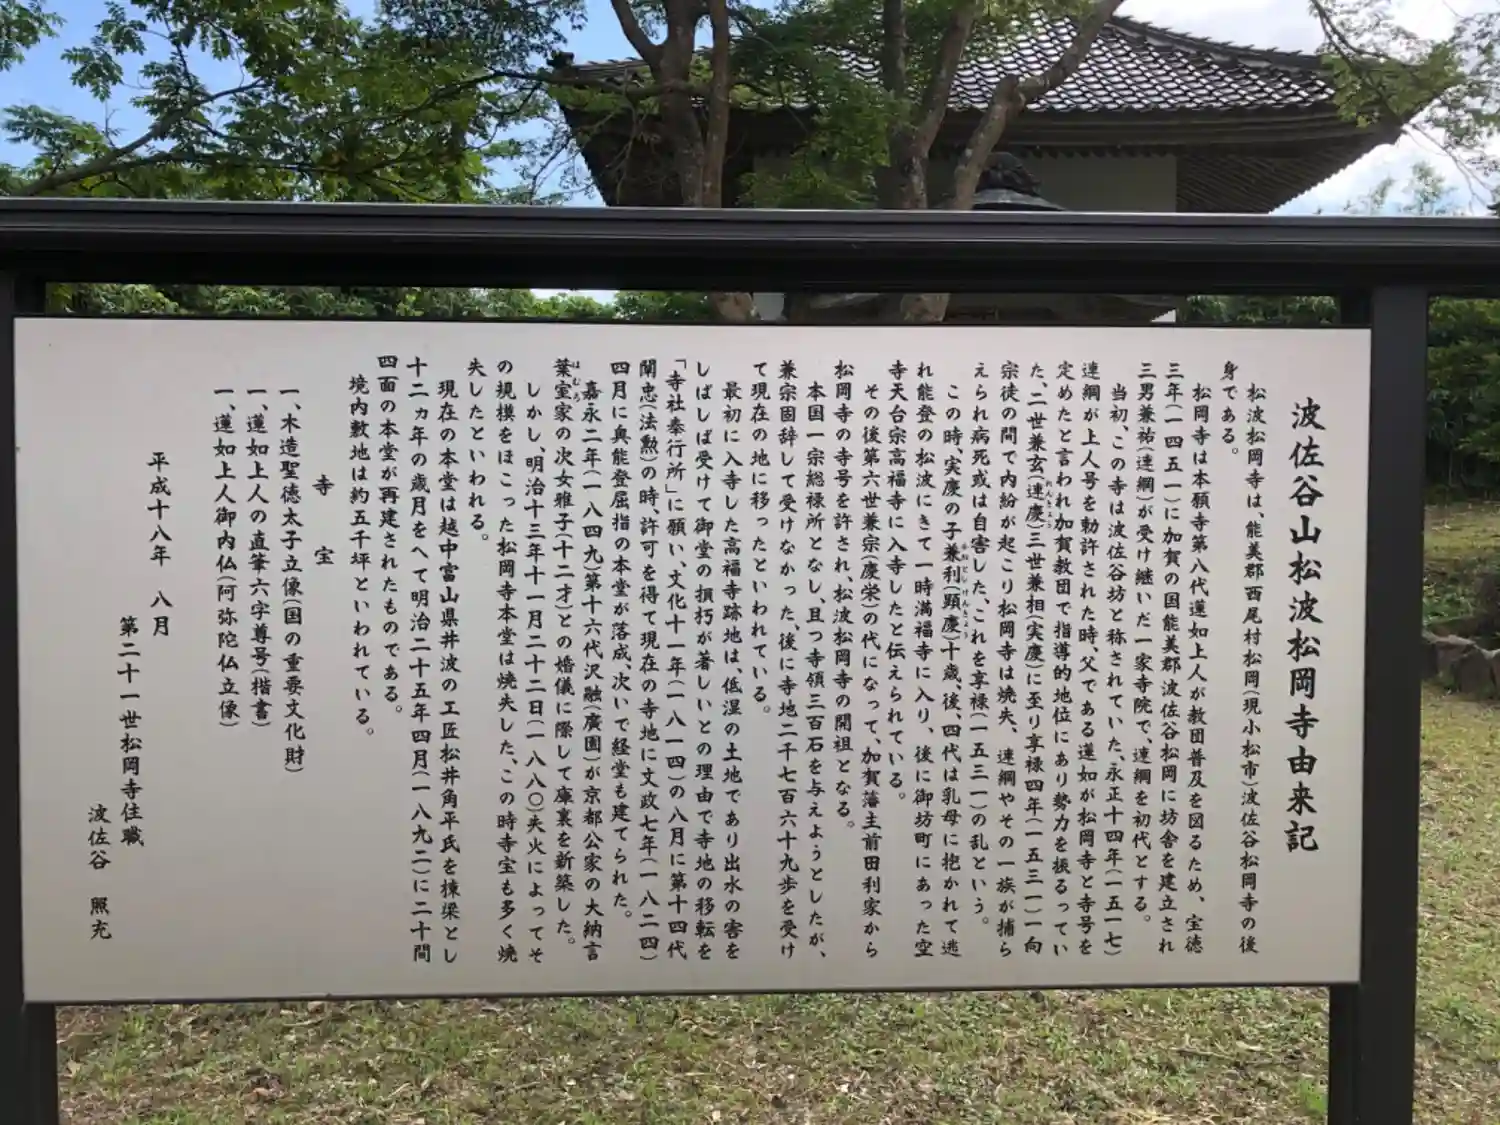 波佐谷山松波松岡寺由来記
松波松岡寺は、能美郡西尾村松岡(現小松市)波佐谷松岡寺の後
身である。
松岡寺は本願寺第八代蓮如上人が教団普及を図るため、宝徳
三年(一四五一)に加賀の国能美郡波佐谷松岡に坊舎を建立され
三男兼祐(蓮綱)が受け継いだ一家寺院で、蓮綱を初代とする。
当初、この寺は波佐谷坊と称されていた、永正十四年(一五一七)
蓮綱が上人号を勅許された時、父である蓮如が松岡寺と寺号を
定めたと言われ加賀教団で指導的地位にあり勢力を振るってい
た、二世兼玄(蓮慶)三世兼相(実慶)に至り享禄四年(一五三一)一向
宗徒の間で内紛が起こり松岡寺は焼失、蓮綱やその一族が捕ら
えられ病死或は自害した、これを享禄(一五三一)の乱という。
この時、実慶の子兼利(顕慶)十歳、後、四代は乳母に抱かれて逃
れ能登の松波にきて一時満福寺に入り、後に御坊町にあった空
寺天台宗高福寺に入寺したと伝えられている。
その後第六世兼宗(慶栄)の代になって、加賀藩主前田利家から
松岡寺の寺号を許され、松波松岡寺の開祖となる。
本国一宗総禄所となし、且つ寺領三百石を与えようとしたが、
兼宗固辞して受けなかった、後に寺地二千七百六十九歩を受け
て現在の地に移ったといわれている。
最初に入寺した高福寺跡地は、低湿の土地であり出水の害を
しばしば受けて御堂の損朽が著しいとの理由で寺地の移転を
「寺社奉行所」に願い、文化十一年(一八一四)の八月に第十四代
闡忠(法勲)の時、許可を得て現在の寺地に文政七年(一八二四)
四月に奥能登屈指の本堂が落成、次いで経堂も建てられた。
嘉永二年(一八四九)第十六代沢融(廣園)が京都公家の大納言
葉室家の次女雅子(十二才)との婚儀に際して庫裏を新築した。
しかし、明治十三年十一月二十二日(一八八〇)失火によってそ
の規模をほこった松岡寺本堂は焼失した、この時寺宝も多く焼
失したといわれる。
現在の本堂は越中富山県井波の工匠松井角平氏を棟梁とし
十二ヵ年の歳月をへて明治二十五年四月(一八九二)に二十間
四面の本堂が再建されたものである。
境内敷地は約五千坪といわれている。
寺宝
一、木造聖徳太子立像(国の重要文化財)
一、蓮如上人の直筆六字尊号(楷書)
一、蓮如上人御内仏(阿弥陀仏立像)
平成十八年 八月
第二十一世松岡寺住職
波佐谷 照充